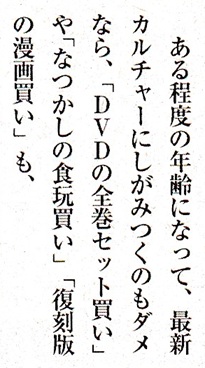 ある程度の年齢になって、最新
カルチャーにしがみつくのもダメ
なら、「DVDの全巻セット買い」
や「なつかしの食玩買い」「復刻版
の漫画買い」も、